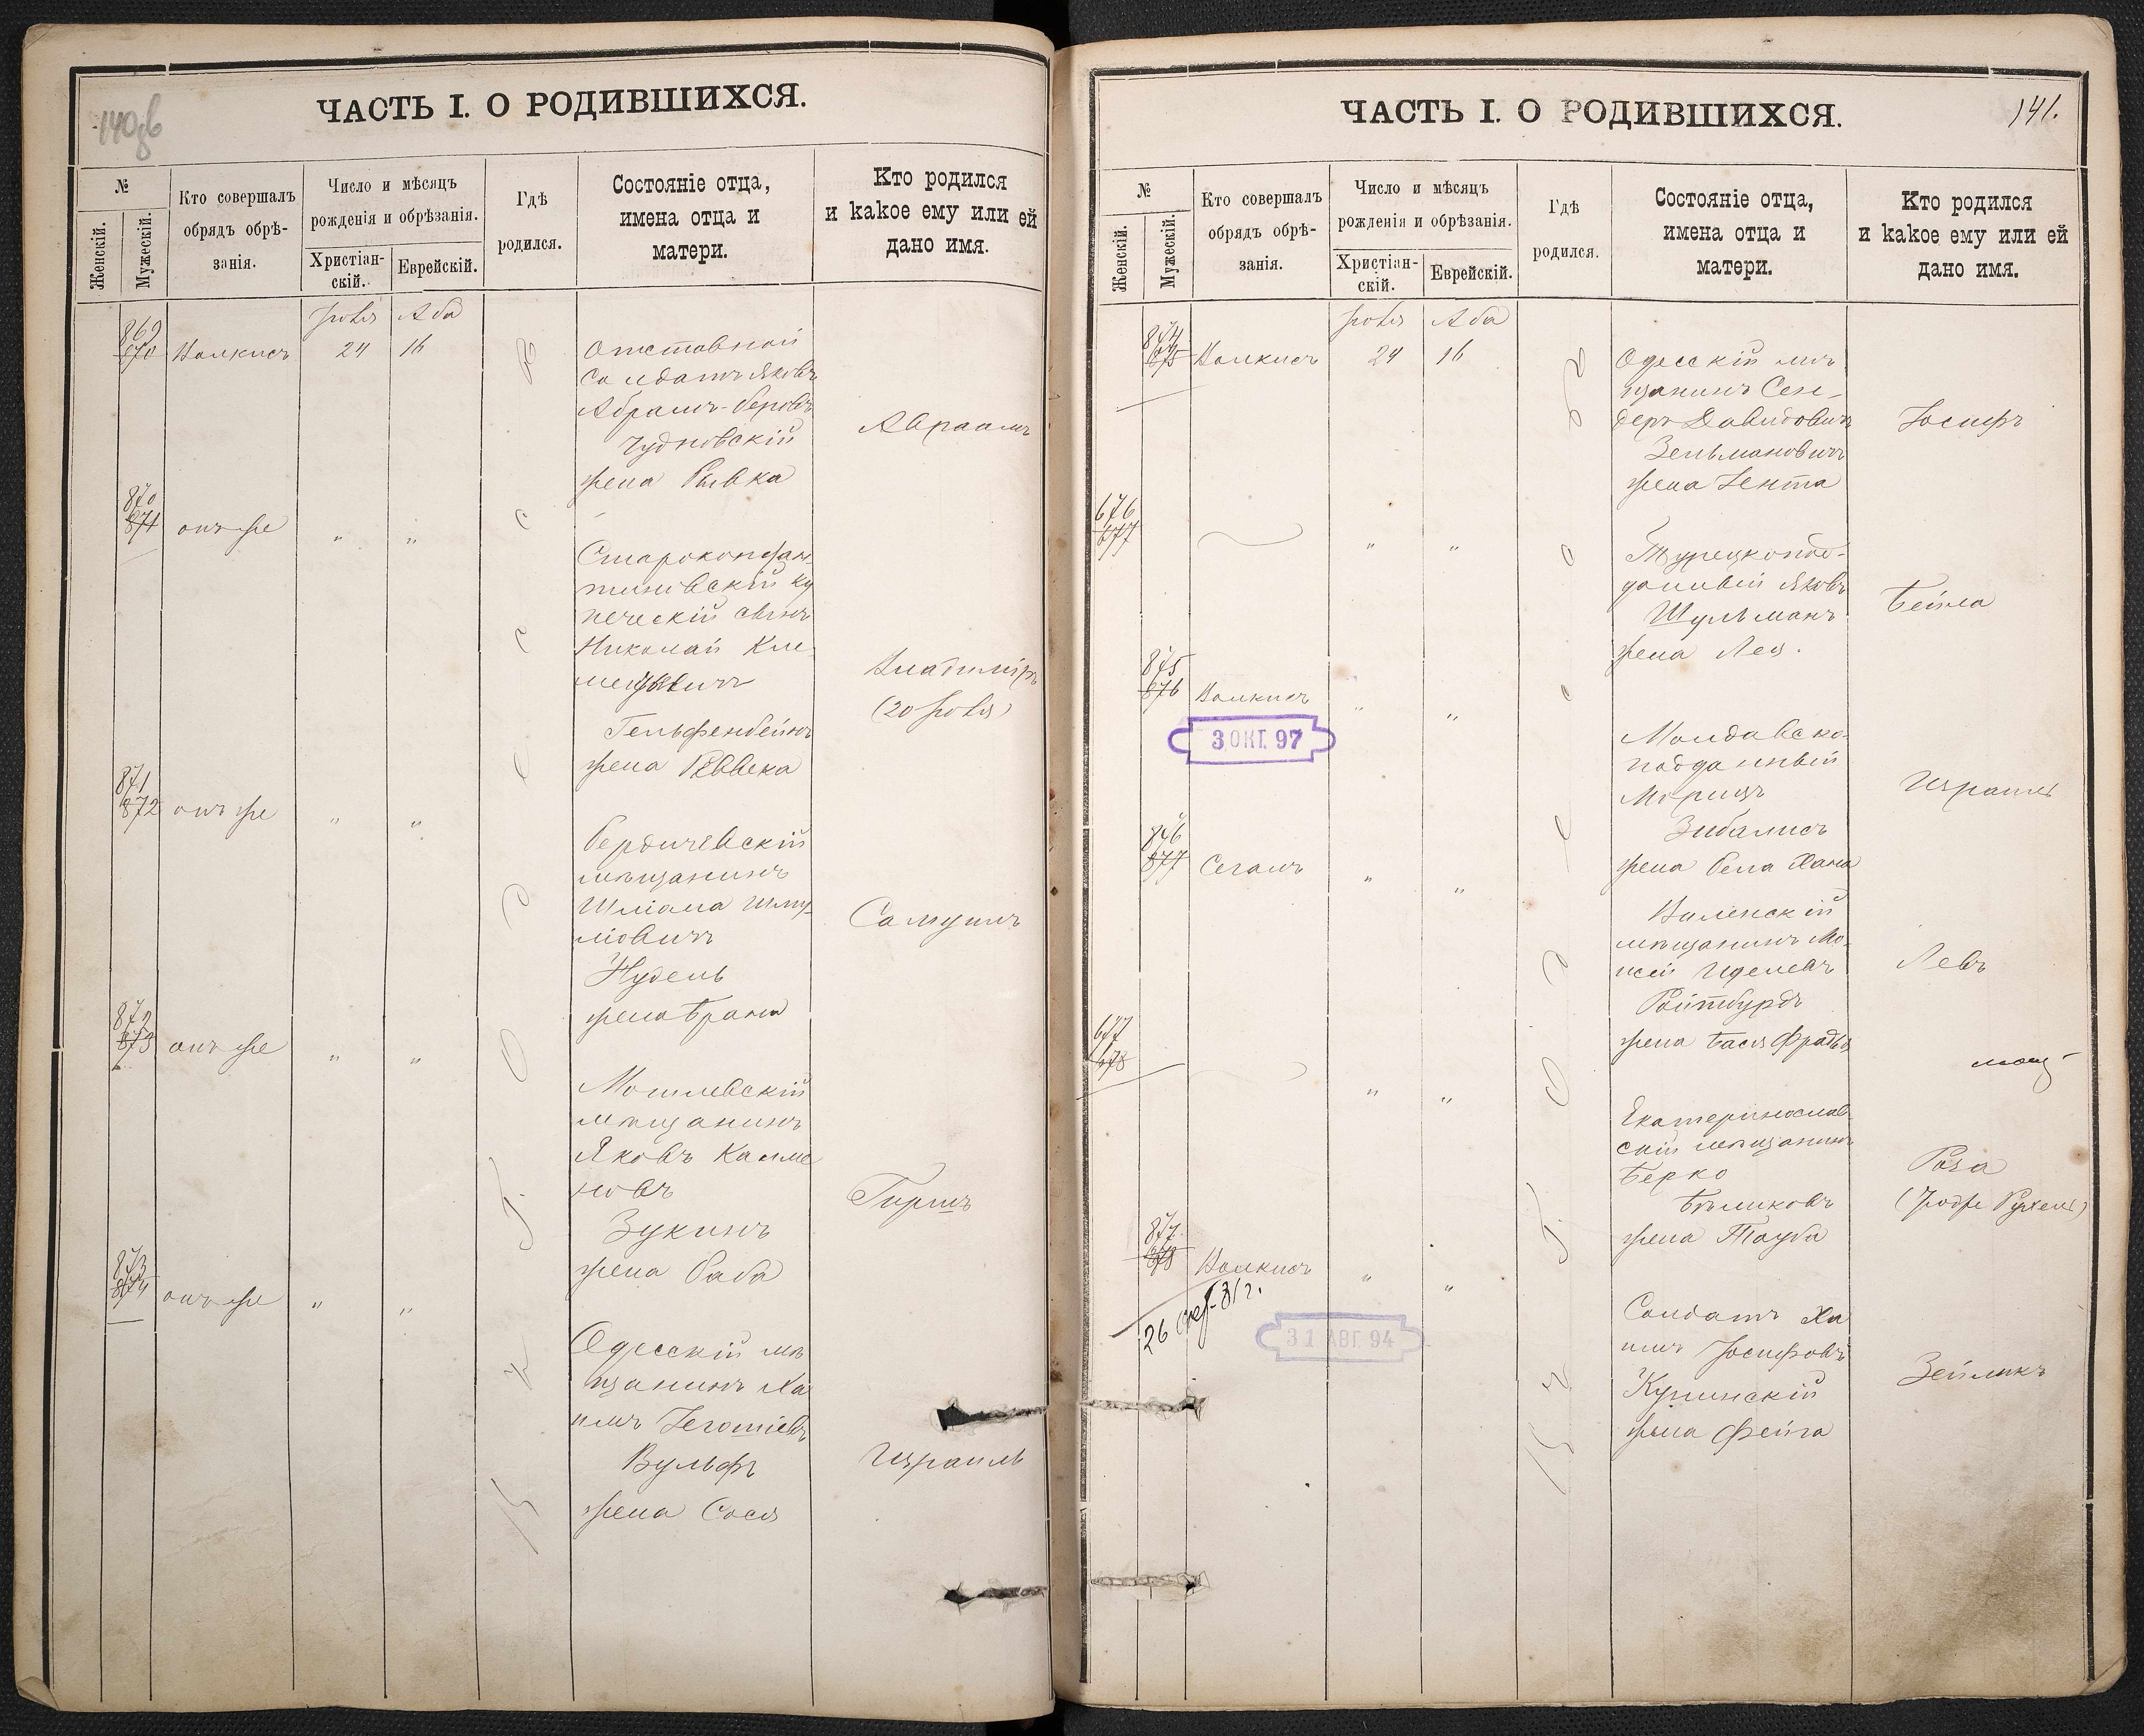 140об
ЧАСТЬ I. О РОДИВШИХСЯ.
№
Женскій.
Мужескій.
Кто совершалъ
обрядъ обрѣ-
занія.
Число и мѣсяцъ
рожденія и обрѣзанія.
Христіан-
скій.
Еврейскій.
Гдѣ
родился.
Состояніе отца,
имена отца и
матери.
Кто родился
и какое ему или ей
дано имя.
Іюля Аба
869
870 Валкисъ 24 16
Отставной
Солдатъ Яковъ
Абрамъ-беровъ
Чудновскій
жена Рывка
Авраамъ
870
871 онъ же " "
Староконстан-
тиновскій ку
печескій сынъ
Николай Кли-
Гельфенбейнъ
жена Реввека
Владиміръ
(20 Іюля)
871
872 онъ же " "
бердичевскій
мѣщанинъ
Шліома Шму-
ліовичъ
Нудель
жена Брана
Самуилъ
872
873 онъ же " "
Могилевскій
мѣщанинъ
Яковъ Калма
новъ
Зукинъ
жена Раба
Гиршъ
873
874 онъ же " "
Одесскій мѣ
щанинъ Ха
имъ
Вульфъ
жена Сося
Израиль
въ
с
с
с
О
д
141.
ЧАСТЬ I. О РОДИВШИХСЯ.
№
Женскій.
Мужескій.
Кто совершалъ
обрядъ обрѣ-
занія.
Число и мѣсяцъ
рожденія и обрѣзанія.
Христіан-
скій.
Еврейскій.
Гдѣ
родился.
Состояніе отца,
имена отца и
матери.
Кто родился
и какое ему или ей
дано имя.
Іюля Аба
874
875 Валкисъ 24 16
Одесскій мѣ
щанинъ Сен-
деръ Давидовичъ
Зельмановичъ
жена Іента
Іосифъ
676
677 " "
Турецкопод-
данный Яковъ
Шульманъ
жена Лея.
Бейла
875
876 Валкисъ " "
3 ОКТ. 97
Молдавско-
подданный
Морицъ
Зибалисъ
жена Рела Хана
Израиль
876
877 Сегалъ " "
Виленскій
мѣщанинъ Мо-
исей Иделевъ
Ройтбурдъ
жена Бася Фрадья
Левъ
677
678 " "
Екатеринослав-
скій мѣщанинъ
Берко
Бѣликовъ
жена Тауба
Роза
877
878 Валкисъ " "
31 АВГ. 94
Солдатъ Ха
имъ Іосифовъ
жена Фейга
Зейликъ